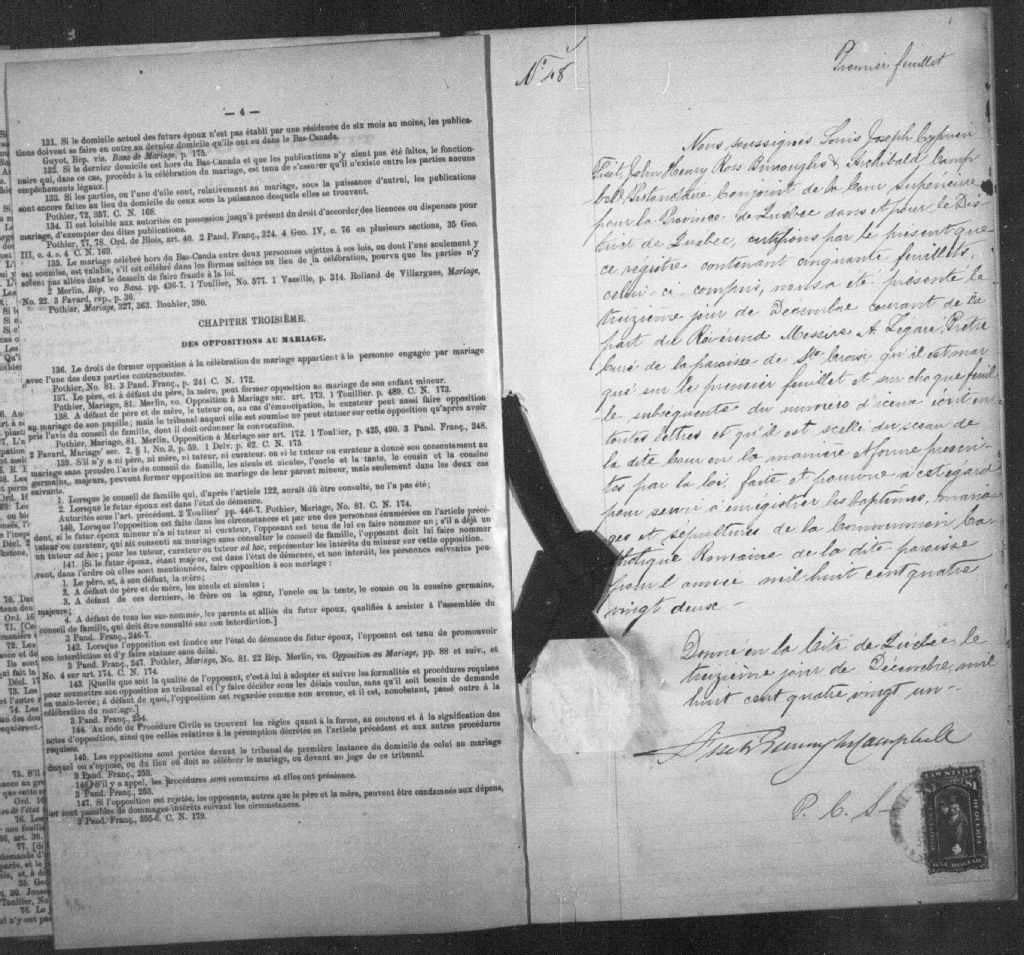 — 4 —
131. Si le domicile actuel des futurs époux n'est pas établi par une résidence de six mois au moins, les publica-
tions doivent se faire en outre au dernier domicile qu'ils ont eu dans le Bas-Canada.
Guyot, Rép. vis. Bans de Mariage, p. 175.
132. Si le dernier domicile est hors du Bas-Canada et que les publications n'y aient pas été faites, le fonction-
naire qui, dans ce cas, procède à la célébration du mariage, est tenu de s'assurer qu'il n'existe entre les parties aucuns
empêchements légaux.]
133. Si les parties, ou l'une d'elles, sont, relativement au mariage, sous la puissance d'autrui, les publications
sont encore faites au lieu du domicile de ceux sous la puissance desquels elles se trouvent.
Pothier, 72, 357. C. N. 168.
134. Il est loisible aux autorités en possession jusqu'à présent du droit d'accorder des licences ou dispenses pour
mariage, d'exempter des dites publications.
Pothier, 77, 78. Ord. de Blois, art. 40. 2 Pand. Franç., 324. 4 Geo. IV, c. 76 en plusieurs sections, 35 Geo.
III, c. 4. s. 4 C. N. 169.
135. Le mariage célébré hors du Bas-Canda entre deux personnes sujettes à ses lois, ou dont l'une seulement y
est soumise, est valable, s'il est célébré dans les formes usitées au lieu de la célébration, pourvu que les parties n'y
soient pas allées dans le dessein de faire fraude à la loi.
2 Merlin, Rép, vo Bans. pp. 436-7. 1 Toullier, No. 577. 1 Vazeille, p. 314. Rolland de Villargues, Mariage,
No. 22. 3 Favard, rép., p. 30.
Pothier, Mariage, 327, 363. Bouhier, 390.
CHAPITRE TROISIÈME.
DES OPPOSITIONS AU MARIAGE.
136. Le droit de former opposition à la célébration du mariage appartient à la personne engagée par mariage
avec l'une des deux parties contractantes.
Pothier, No. 81. 3 Pand. Franç., p. 241 C. N. 172.
137. Le père, et à défaut du père, la mère, peut former opposition au mariage de son enfant mineur.
Pothier, Mariage, 81. Merlin, vo. Opposition à Mariage sur. art. 173. 1 Touillier. p. 489. C. N. 173.
138. A défaut de père et de mère, le tuteur ou, au cas d'émancipation, le curateur peut aussi faire opposition
au mariage de son pupille; mais le tribunal auquel elle est soumise ne peut statuer sur cette opposition qu'après avoir
pris l'avis du conseil de famille, dont il doit ordonner la convocation.
Pothier, Mariage, 81. Merlin, Opposition à Mariage sur art. 172. 1 Toullier, p. 425, 490. 3 Pand. Franç., 248.
2 Favard, Mariage' sec. 2. § 1, No. 3, p. 59. 1 Delv. p. 62. C. N. 175
139. S'il n'y a ni père, ni mère, ni tuteur, ni curateur, ou si le tuteur ou curateur a donné son consentement au
mariage sans prendre l'avis du conseil de famille, les aïeuls et aïeules, l'oncle et la tante, le cousin et la cousine
germains, majeurs, peuvent former opposition au mariage de leur parent mineur, mais seulement dans les deux cas
suivants.
1. Lorsque le conseil de famille qui, d'après l'article 122, aurait dû être consulté, ne l'a pas été;
2. Lorsque le futur époux est dans l'état de démence.
Autorités sous l'art. précédent. 2 Toullier' pp. 446-7. Pothier, Mariage, No. 81. C. N. 174.
140. Lorsque l'opposition est faite dans les circonstances et par une des personnes énumérées en l'article précé-
dent, si le futur époux mineur n'a ni tuteur ni curateur, l'opposant est tenu de lui en faire nommer un; s'il a déjà un
tuteur ou curateur, qui ait consenti au mariage sans consulter le conseil de famille, l'opposant doit lui faire nommer
un tuteur ad hoc; pour les tuteur, curateur ou tuteur ad hoc, représenter les intérêts du mineur sur cette opposition.
141. Si le futur époux, étant majeur, est dans l'état de démence, et non interdit, les personnes suivantes peu-
vent, dans l'ordre où elles sont mentionnées, faire opposition à son mariage:
1. Le père, et, à son défaut, la mère;
2. A défaut de père et de mère, les aïeuls et aïeules;
3. A défaut de ces derniers, le frère ou la sœur, l'oncle ou la tente, le cousin ou la cousine germains,
majeurs;
4. A défaut de tous les sus-nommés, les parents et alliés du futur époux, qualifiés à assister à l'assemblée du
conseil de famille, qui doit être consulté sur son interdiction.]
2 Pand. Franç., 246-7.
142. Lorsque l'opposition est fondée sur l'état de démence du futur époux, l'opposant est tenu de promouvoir
son interdiction et d'y faire statuer sans délai.
3 Pand. Franç., 247. Pothier, Mariage, No. 81. 22 Rép. Merlin, vo. Opposition au Mariage, pp. 88 et suiv., et
No. 4 sur art. 174. C. N. 174.
143. [Quelle que soit la qualité de l'opposant, c'est à lui à adopter et suivre les formalités et procédures requises
pour soumettre son opposition au tribunal et l'y faire décider sous les délais voulus, sans qu'il soit besoin de demande
en main-levée; à défaut de quoi, l'opposition est regardée comme non avenue, et il est, nonobstant, passé outre à la
célébration du mariage.]
3 Pand. Franç., 254.
144. Au code de Procédure Civile se trouvent les règles quant à la forme, au contenu et à la signification des
actes d'opposition, ainsi que celles relatives à la péremption décrétée en l'article précédent et aux autres procédures
requises.
145. Les oppositions sont portées devant le tribunal de première instance du domicile de celui au mariage
duquel on s'oppose, ou du lieu où doit se célébrer le mariage, ou devant un juge de ce tribunal.
3 Pand. Franç., 253.
146. S'il y a appel, les procédures sont sommaires et elles ont présence.
3 Pand. Franç., 253.
147. Si l'opposition est rejetée, les opposants, autres que le père et la mère, peuvent être condamnés aux dépens,
et sont passibles de dommages-intérêts suivant les circonstances.
3 Pand. Franç., 255-6. C. N. 179.
No. 48
Premier feuillet
Nous, soussignés Louis Joseph Cyprien
Fiset, John Henry Ross Burroughs & Archibald Camp
bell, Protonotaire Conjoint de la Cour Supérieure
pour la Province de Québec dans et pour le Dis-
trict de Québec, certifions par le présent que
ce régistre contenant cinquante feuillets,
celui-ci compris, nous a été présenté le
treizième jour de Décembre courant de la
part du Révérend Messire A. Legaré, Prêtre
Curé de la paroisse de Ste Croix, qu'il est mar-
qué sur le premier feuillet et sur chaque feuil-
le subséquents du numéro d'iceux écrit en
toutes lettres et qu'il est scellé du sceau de
la dite Cour en la manière et forme prescri-
tes par la loi, faite et pourvue à cet égard
pour servir à enrégistrer les baptêmes, maria-
ges et sépultures de la Communion Ca-
tholique Romaine de la dite paroisse
pour l'année mil huit cent quatre
vingt deux -
Donné en la Cité de Québec, le
treizième jour de Décembre, mil
huit cent quatre vingt un -
Fiset Burroughs Campbell
P. C. S
LAW STAMP
$1
ONE DOLLAR